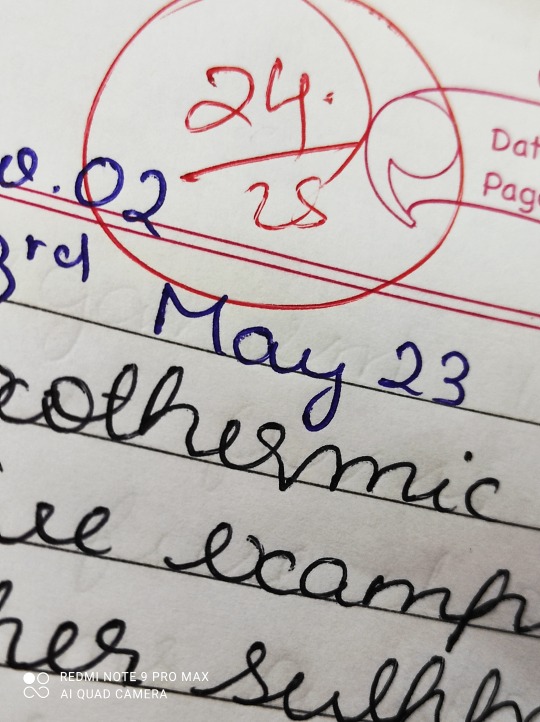 24.
25
Dat
Page
o. 02
3rd
May 23
xothermic
examp
REDMI NOTE 9 PRO MAX
AI QUAD CAMERA